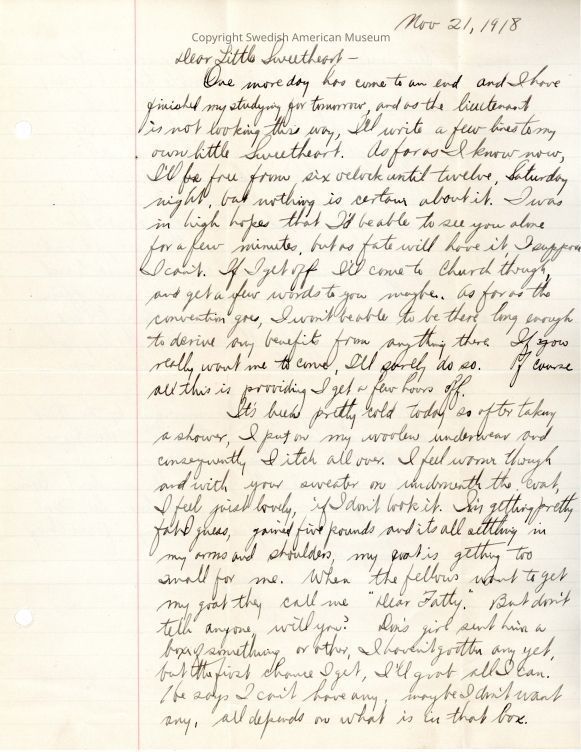 Nov 21, 1918
Copyright Swedish American Museum
Dear Little Sweetheart –
One more day has come to an end and I have
finished my studying for tomorrow, and as the lieutenant
is not looking this way, I'll write a few lines to my
own little Sweetheart. As far as I know now,
I'll be free from six oclock until twelve, Saturday
night, but nothing is certain about it. I was
in high hopes that I'd be able to see you alone
for a few minutes, but as fate will have it, I suppose
I can't. If I get off I'll come to Church though,
and get a few words to you maybe. As far as the
convention goes, I won't be able to be there long enough
to derive any benefits from anything there. If you
really want me to come, I'll surely do so. Of course
all this is providing I get a few hours off.
It's been pretty cold today so after taking
a shower, I put on my woolen underwear and
consequently I itch all over. I feel warm though
and with your sweater on underneath the coat,
I feel just lovely, if I don't look it. I'm getting pretty
fat I guess, gained five pounds and its all settling in
my arms and shoulders, my coat is getting too
small for me. When the fellows want to get
my goat they call me "Dear Fatty." But don't
tell anyone, will you? Don's girl sent him a
box of something or other, I haven't gotten any yet,
but the first chance I get, I'll grab all I can.
He says I can't have any, maybe I don't want
any, all depends on what is in that box.